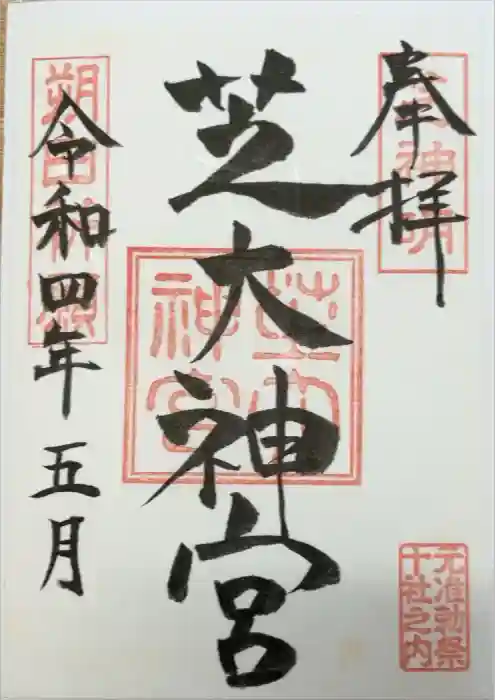 奉拝
芝大神宮
令和四年五月
芝大神宮
元准勅祭
十社之内